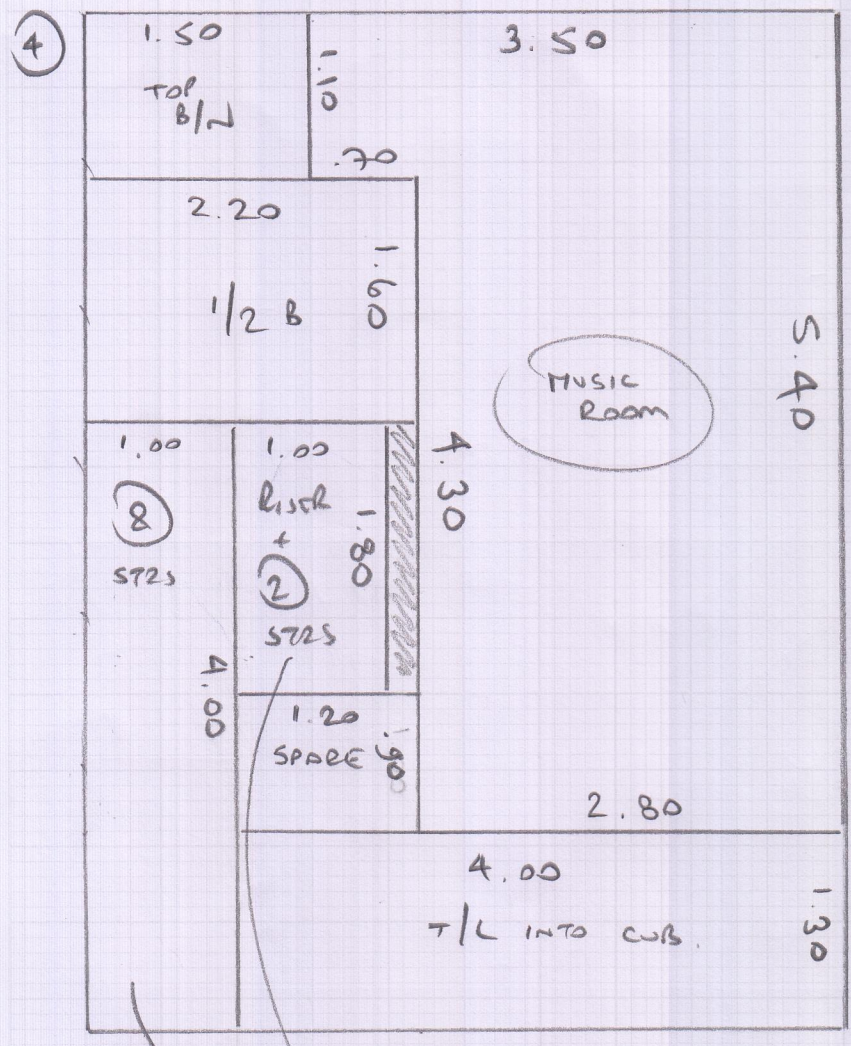 4
1.50
TOP
B/N
1.10
.70
3.50
2.20
1/2 B
1.60
MUSIC
ROOM
5.40
4.30
1.00
8
STRS
4.00
1.00
RISER
+
2
STRS
1.80
1.20
SPARE
.90
2.80
4.00
T/L INTO CUB.
1.30